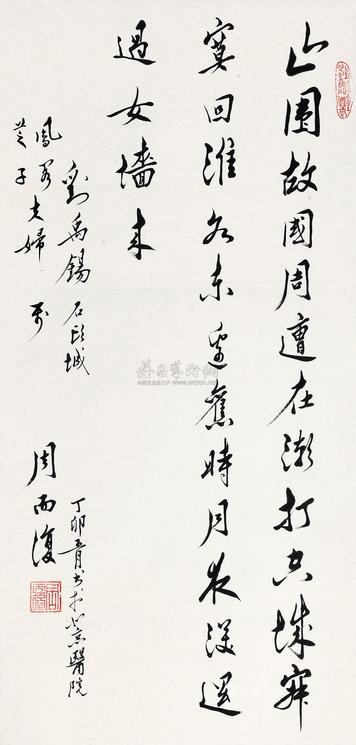 山圍故國周遭在潮打空城寂
寞回淮水東邊舊時月夜深還
過女墻來
劉禹錫 石頭城
鳳 夫婦
芝子
周而復
丁卯 月書於北京醫院